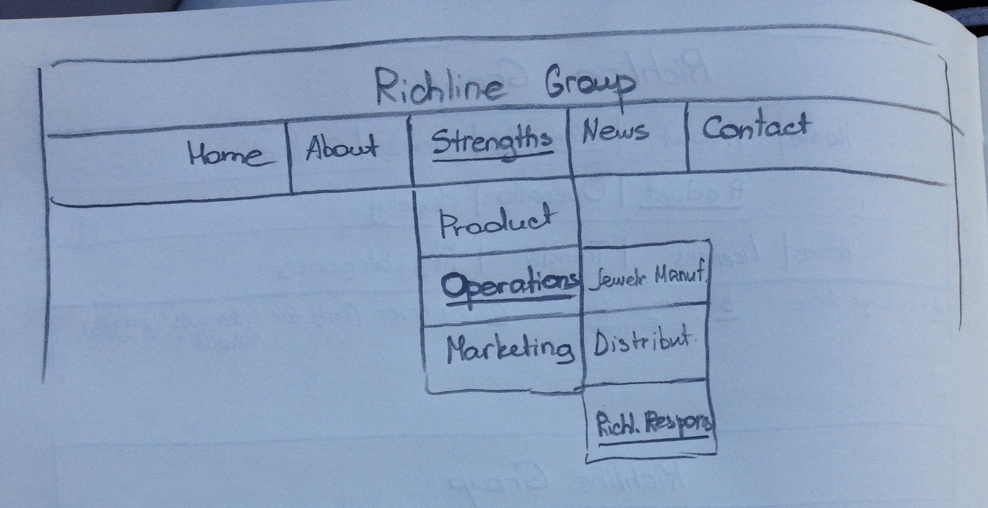 Richline Group
Home About Strengths News Contact
Product
Operations Jewelr Manuf.
Marketing Distribut.
Richl. Respons